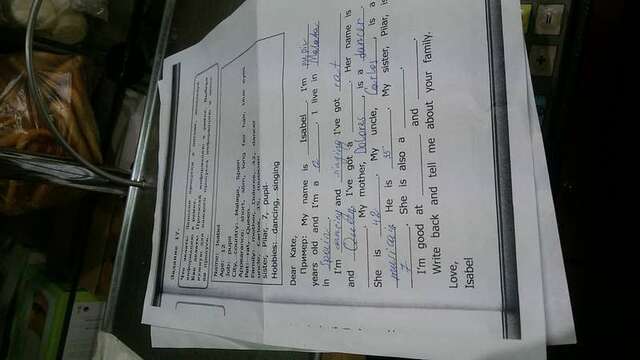 Задание 17.
Что делать: Заполни пропуски в письме, используя
информацию в рамке.
Как делать: Прочитай информацию в рамке. Выбери
нужную для каждого пропуска информацию и впиши
на пропуске.
Name: Isabel
Age: 12
Job: pupil
City, country: Malaga, Spain
Appearance: short, slim, long fair hair, blue eyes
Pet: rat, Queen
Family: mother, Dolores, 42, dancer
uncle, Carlos, 35, musician
sister, Pilar, 7, pupil
Hobbies: dancing, singing
Dear Kate,
Пример: My name is Isabel. I'm pupil
years old and I'm a a. I live in
in Spain.
I'm dancing and singing I've got rat
and Queen I've got a . Her name is
. My mother, Dolores, is a dancer.
She is 42. My uncle, Carlos, is a
musician He is 35. My sister, Pilar, is
7. She is also a .
I'm good at and .
Write back and tell me about your family.
Love,
Isabel